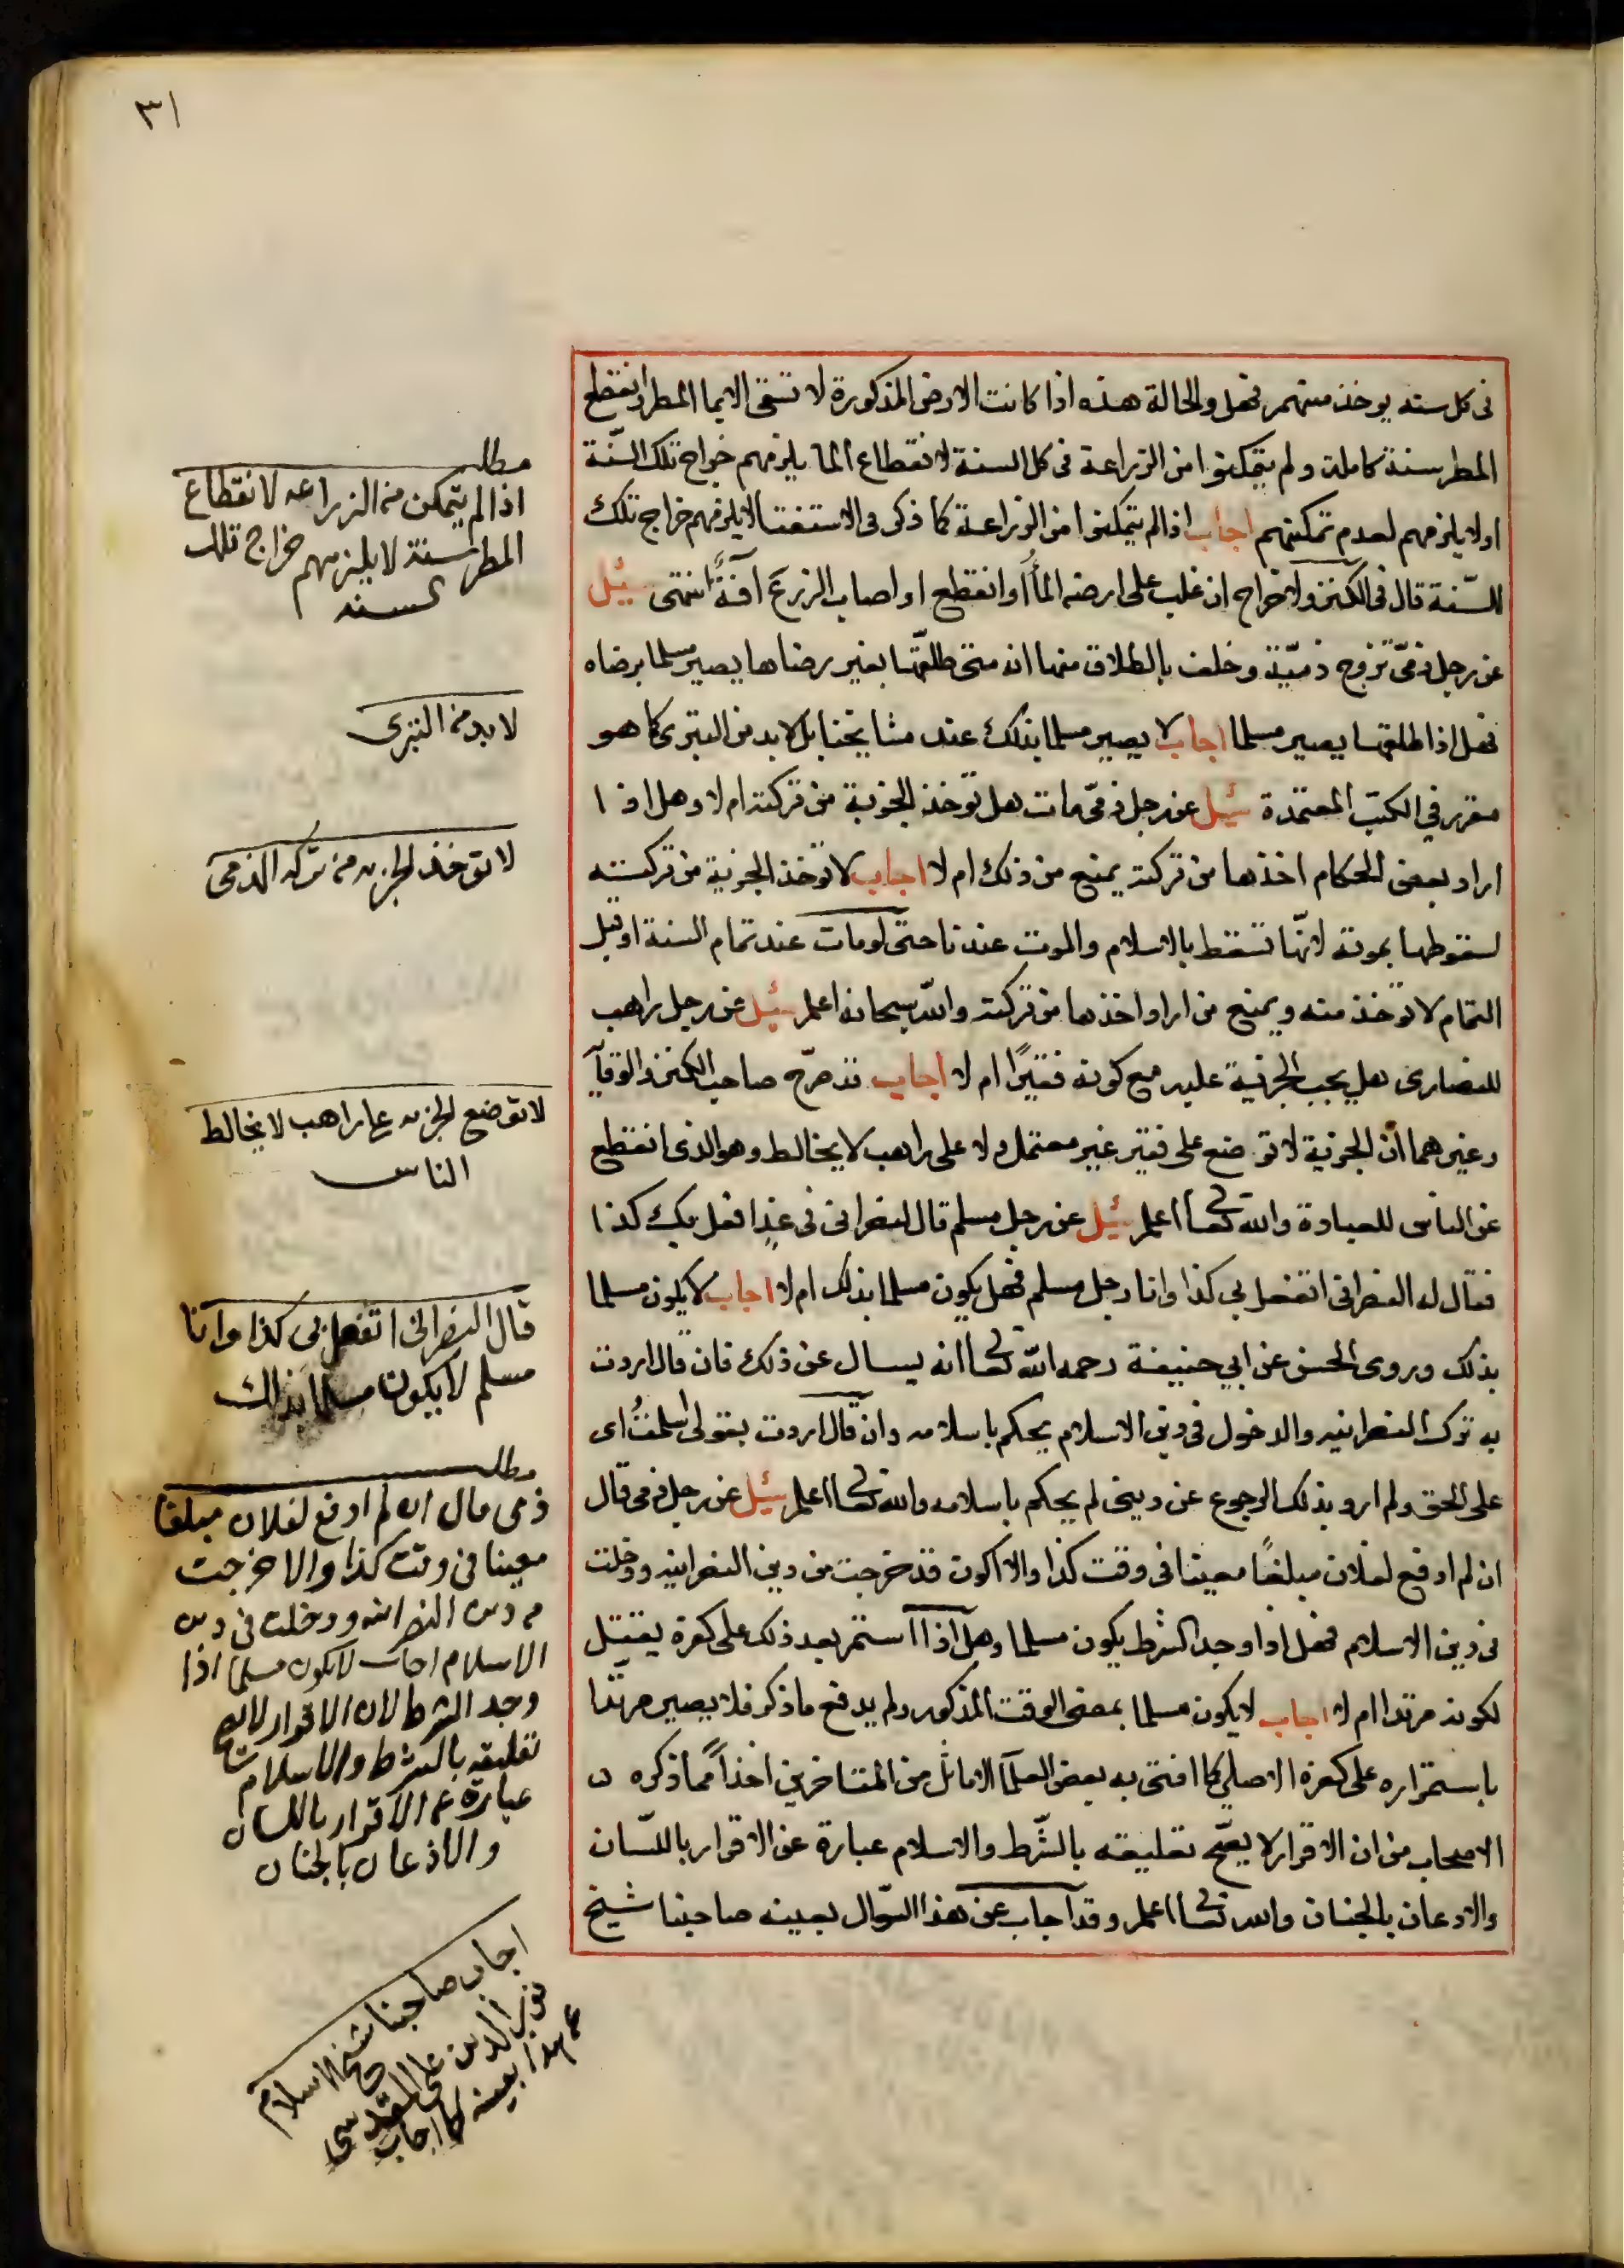 ٣١
فى كل سنه يوخذ منهم فهل والحالة هذه اذا كانت الارض المذكورة لا تسقى الا بما المطر وانقطع
المطر سنة كاملة ولم يتمكنوا من الزراعة فى كل السنة لانقطاع الما يلزمهم خراج تلك السّنة
اولا يلزمهم لعدم تمكنهم اجاب اذا لم يتمكنوا من الزراعة كما ذكر فى الاستفتا لا يلزمهم خراج تلك
السّنة قال فى الكنز ولا خراج ان غلب على ارضه المأ أو انقطع او اصاب الزرع آفةٌ انتهى سئل
عن رجل ذمىّ تزوج ذميّة وحلف بالطلاق منها انه متى طلقها بغير رضاها يصير مسلما برضاه
فهل اذا طلقها يصير مسلما اجاب لا يصير مسلما بذلك عند مشايخنا بل لا بد من التبرى كما هو
مقرر في الكتب المعتمدة سئل عن رجل ذمىّ مات هل تؤخذ الجزية من تركته ام لا وهل اذا
اراد بعض الحكام اخذها من تركته يمنع من ذلك ام لا اجاب لا تؤخذ الجزية من تركته
لسقوطها بموته لانّها تسقط بالاسلام والموت عندنا حتى لو مات عند تمام السنة او قبل
التمام لا تؤخذ منه ويمنع من اراد اخذها من تركته والله سبحانه اعلم سئل عن رجل راهب
للنصارى هل يجب الجزية عليه مع كونه فقيرًا ام لا اجاب قد صرّح صاحب الكنز والوقاية
وغيرهما أن الجزية لا توضع على فقير غير معتمل ولا على راهب لا يخالط وهو الذى انقطع
عن الناس للعبادة والله تعالى اعلم سئل عن رجل مسلم قال لنصرانى فى غدٍ افعل بك كذا
فقال له النصرانى اتفعل بى كذا وانا رجل مسلم فهل يكون مسلما بذلك ام لا اجاب لا يكون مسلما
بذلك وروى الحسن عن ابي حنيفة رحمه الله تعالى انه يسال عن ذلك فان قال اردت
به ترك النصرانيه والدخول فى دين الاسلام يحكم باسلامه وان قال اردت بقولى اسلمتُ اى
على الحق ولم ارد بذلك الرجوع عن دينى لم يحكم باسلامه والله تعالى اعلم سئل عن رجل ذمى قال
ان لم ادفع لفلان مبلغًا معينا فى وقت كذا والا اكون قد خرجت من دين النصرانيه ودخلت
فى دين الاسلام فهل اذا وجد الشرط يكون مسلما وهل اذا استمر بعد ذلك على كفره يقتل
لكونه مرتدا ام لا اجاب لا يكون مسلما بمضى الوقت المذكور ولم يدفع ما ذكر فلا يصير مرتدا
باستمراره على كفره الاصلي كما افتى به بعض العلمآ الاماثل من المتاخرين اخذاً مما ذكره
الاصحاب من ان الاقرار لا يصحّ تعليقه بالشّرط والاسلام عبارة عن الاقرار باللسّان
والاذعان بالجنان والله تعالى اعلم وقد اجاب عن هذا السّوال بعينه صاحبنا شيخ
مطلب
اذا لم يتمكن من الزراعه لانقطاع
المطر سنة لا يلزمهم خراج تلك
السنه
لا بد من التبرى
لا توخذ الجزيه من تركه الذمى
لا توضع الجزيه على راهب لا يخالط
الناس
قال النصرانى اتفعل بى كذا وانا
مسلم لا يكون مسلما بذلك
مطلب
ذمى قال ان لم ادفع لفلان مبلغا
معينا فى وقت كذا والا خرجت
من دين النصرانيه ودخلت فى دين
الاسلام اجاب لا يكون مسلما اذا
وجد الشرط لان الاقرار لا يصح
تعليقه بالشرط والاسلام
عبارة عن الاقرار باللسان
والاذعان بالجنان
اجاب صاحبنا شيخ الاسلام
نور الدين على المقدسى
عن هذا بعينه كما اجاب